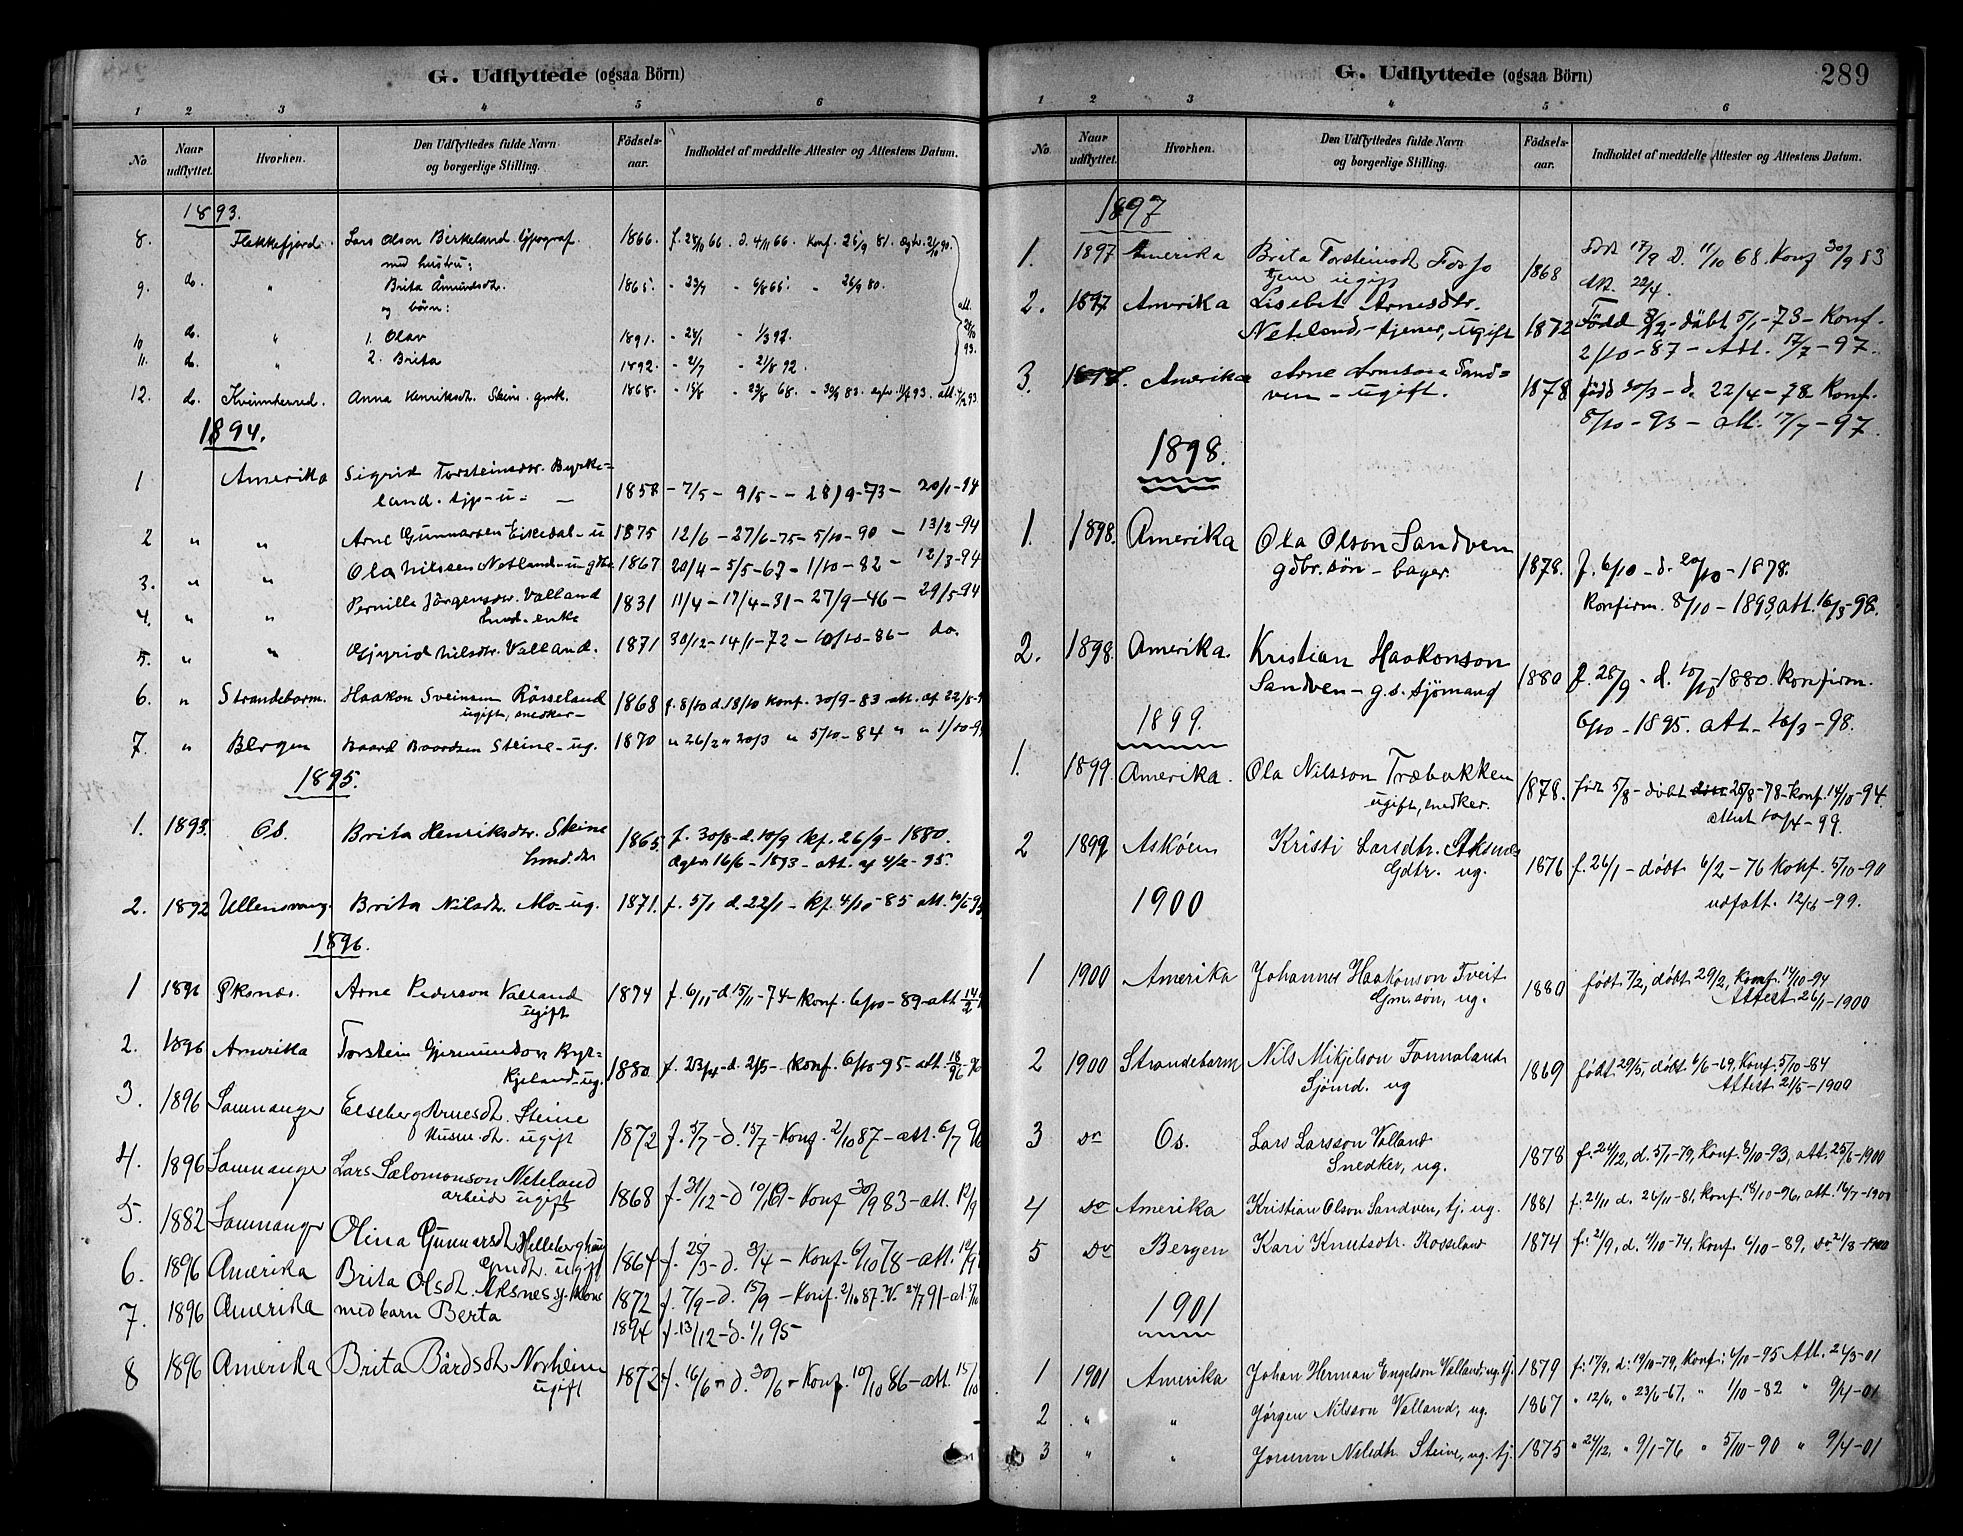 G. Udflyttede (ogsaa Börn)
1 2 3 4 5 6
No Naar udflyttet. Hvorhen. Den Udflyttedes fulde Navn og borgerlige Stilling. Födsels-aar. Indholdet af meddelte Attester og Attestens Datum.
1893.
8. Flekkefjord. Lars Olson Birkeland. typograf. 1866.
med hustru:
9. do. " Brita Åmundsdtr. 1865.
og börn:
10 do. " 1. Olav 1891. - 24/1 - 1/3 92.
11. do. " 2. Brita 1892. - 2/7 - 21/8 92.
12. do. Kvinnherred. Anna Henriksdtr. Steine. gmk. 1868.
1894.
1 Amerika Sigrid Torsteinsdtr. Byrke-
land. 1858 - 7/5 - 9/5 - - 28/9-73 - 20/1-94
2 " " Arne Gunnarsen Eikedal - u 1875 12/6 - 27/6-75 - 5/10-90 - 13/2-94
3. " " Ola Nilssen Netland - u 1867 20/4 - 5/5-67 - 1/10-82 - 12/3-94
4. " " Pernilla Jörgensdtr. Valland 1831 11/4 - 17/4-31 - 27/9-46 - 29/5-94
enke
5. " " Gjyrid Nilsdtr. Valland. 1871 30/12 - 14/1-72 - 10/10-86 - do.
6. " Strandebarm. Haakon Sveinsen Rösseland 1868 f. 8/10 d. 18/10 konf. 30/9-83 att. af 22/8-9
ugift, snedker -
7. " Bergen Baard Baardsen Steine - ug. 1870 " 26/2 " 20/3 " 5/10-84 " " 1/10-9
1895.
1. 1893. Os. Brita Henriksdtr. Steine 1865 f. 30/8 - d. 10/9 kf. 26/9-1880.
16/6 - 1893 - att. af 4/2-95.
2. 1892 Ullensvang. Brita Nilsdtr. Mo - ug. 1871. f. 5/1 d. 22/1 - kf. 4/10-85 att.
1896.
1 1896 Arne Pederson Valland 1874 f. 6/11 - d. 15/11-74 - konf. 6/10-89 - att 14/2
ugift
2. 1896 Amerika Torstein Gjermundson Byr-
kjeland - ug. 1880 f. 23/4 - d. 2/5 - konf. 6/10-95 - att.
3. 1896 Samnanger Elseberg Arnesdtr. Steine
Husm. dtr. ugift 1872 f. 5/7 - d. 15/7 - konf. 2/10 87 - att. 6/7 96
4. 1896 Samnanger Lars Salomonson Neteland
arbeid. ugift 1868 f. 31/12 - d 10/1 69 - Konf 30/9 83 - att. 12/9
5. 1882 Samnanger Olina Gunnarsdtr. Helleberghaug
ugift 1864 f. 25/3 - d. 3/4 - Konf. 6/10 78 - att. 12/9
6. 1896 Amerika Brita Olsdtr. Aksnes 1872 f. 7/9 - d. 15/9 - Konf. 2/10 87.
7. 1896 Amerika med barn Berta 1894 f. 13/12 - d. 1/1 95 -
8 1896 Amerika Brita Bårdsdtr Norheim 1872 f. 16/6 - d. 30/6 - Konf. 10/10 86 - att. 15/10
ugift
G. Udflyttede (ogsaa Börn) 289
1 2 3 4 5 6
No. Naar udflyttet. Hvorhen. Den Udflyttedes fulde Navn og borgerlige Stilling. Födsels-aar. Indholdet af meddelte Attester og Attestens Datum.
1897
1. 1897 Amerika Brita Torsteinsdtr Fosso 1868 født 17/9 d. 11/10 68. Konf 30/9 83
tjene ugift att. 22/4.
2. 1897 Amerika Lisebet Arnesdtr.
Neteland - tjener, ugift 1872 Född 8/12 - döbt 5/1-73 - Konf.
2/10-87 - Att. 17/7-97.
3. 1897. Amerika Arne Arneson Sand-
ven - ugift. 1878 född 30/3 - d. 22/4-78 Konf.
8/10-93 - att. 17/7-97
1898.
1. 1898. Amerika Ola Olson Sandven
gdbr. søn - bager. 1878. f. 6/10 - d. 20/10-1878.
Konfirm. 8/10-1893, att. 16/3-98.
2. 1898. Amerika. Kristian Haakonson
Sandven - g.s. sjömand 1880 f. 28/9 - d. 10/10-1880. Konfirm.
6/10-1895. att. 16/3-98.
1899.
1. 1899. Amerika. Ola Nilsson Træbakken
ugift, snedker. 1878. født 5/8 - döbt 25/8-78 - konf. 14/10-94.
attest 10/4-99.
2 1899 Askøen Kristi Larsdtr. Aksnes
Gdtr. ug. 1876 f. 26/1 - döbt 6/2-76 Konf. 5/10-90
udfatt. 12/6-99.
1900
1 1900 Amerika Johannes Haakonson Tveit
Gm.søn, ug. 1880 født 7/2, døbt 29/2, Konf. 14/10-94
Attest 26/1-1900
2 1900 Strandebarm Nils Mikjelson Fonnaland
Sjömd. ug 1869 født 29/5, døbt 6/6-69, Konf. 5/10-84
Attest 21/5-1900
3 do Os. Lars Larsson Valland
Snedker, ug. 1878 f. 24/12, d. 5/1-79, Konf. 8/10-93, att. 25/6-1900
4 do Amerika Kristian Olson Sandven, tj. ug. 1881 f. 21/11 d. 26/11-81, konf. 18/10-96, att. 16/7-1900
5 do Bergen Kari Knutsdtr. Rosseland 1874 f. 21/9, d. 4/10-74, konf. 6/10-89, do 21/8-1900
1901
1 1901 Amerika Johan Herman Engelson Valland, ug. tj. 1879 f. 17/9, d. 19/10-79, Konf. 6/10-95 Att. 24/3-01
2 " " Jørgen Nilsson Valland, ug. 1867 " 12/6, " 23/6-67, " 1/10-82 " 9/4-01
3 " " Jorunn Nilsdtr. Steine, ug. tj. 1875 " 24/12, " 9/1-76 " 5/10-90 " 9/4-01